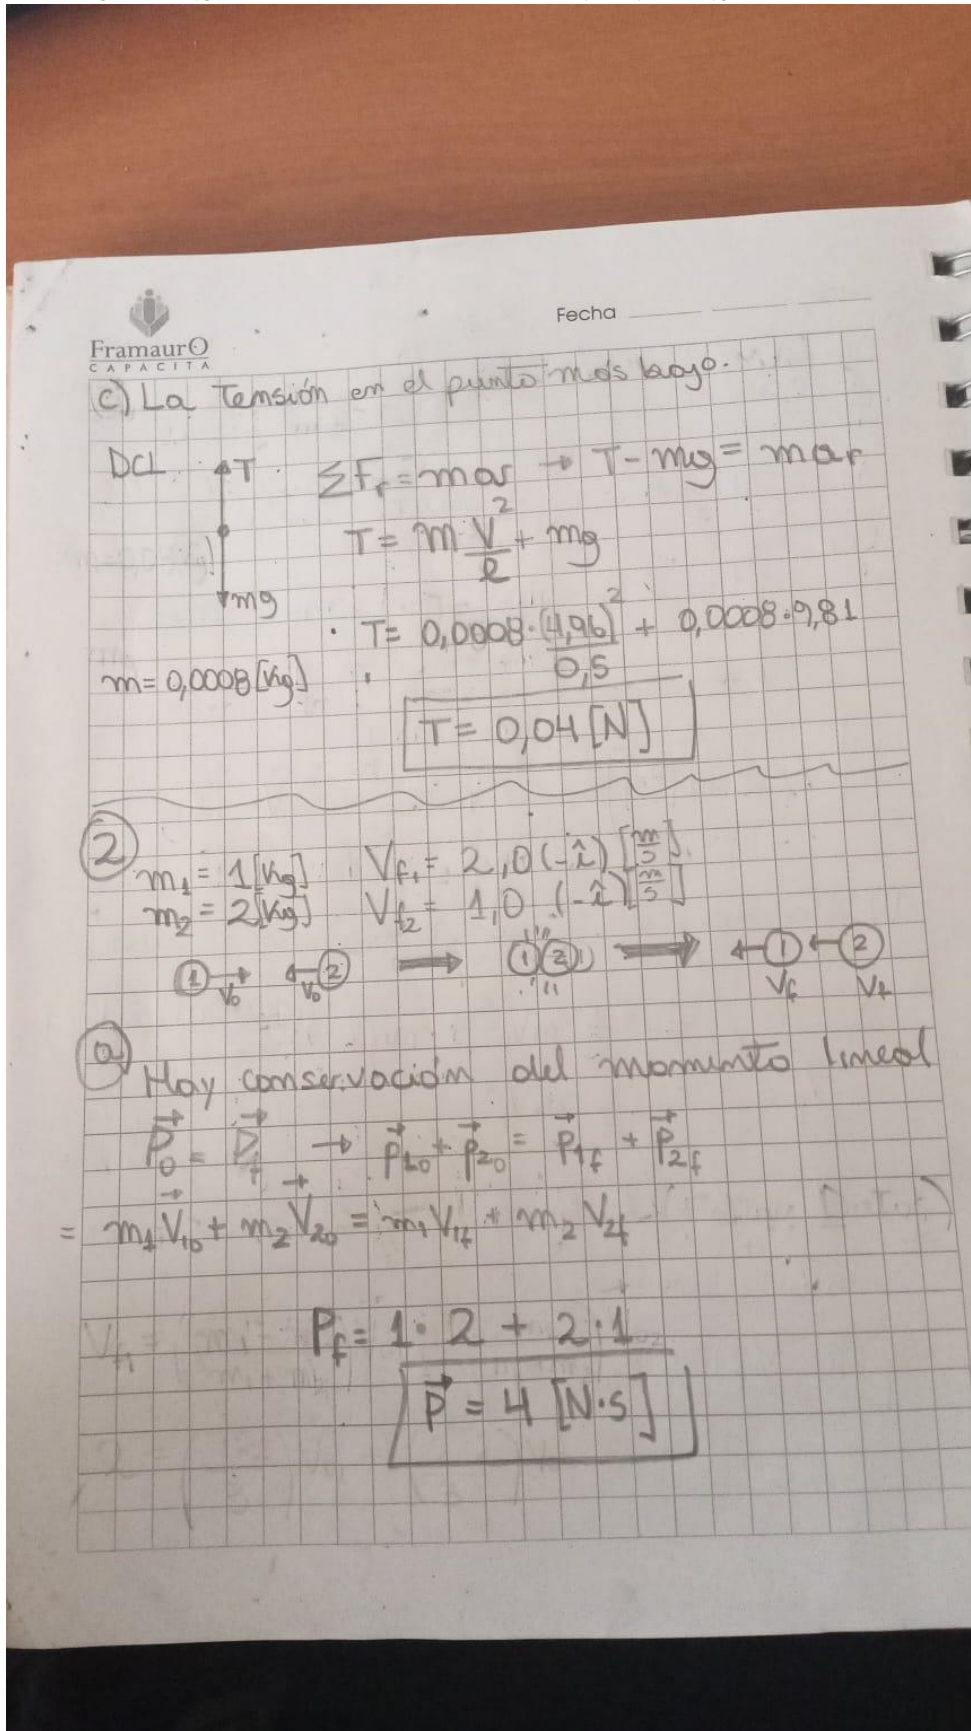 FramaurO
CAPACITA
Fecha
c) La Tensión en el punto más bajo.
DCL T ΣFr = mar → T - mg = mar
T = m V²/R + mg
mg
T = 0,0008·(4,96)²/0,5 + 0,0008·9,81
m = 0,0008 [Kg]
T = 0,04 [N]
2
m₁ = 1 [Kg] Vf₁ = 2,0 (-î) [m/s]
m₂ = 2 [Kg] Vf₂ = 1,0 (-î) [m/s]
1 V₀ 2 V₀ ⇒ 1 2 ⇒ 1 Vf 2 Vf
a) Hay conservación del momento lineal
P⃗₀ = P⃗f → p⃗₁₀ + p⃗₂₀ = p⃗₁f + p⃗₂f
= m₁V⃗₁₀ + m₂V⃗₂₀ = m₁V₁f + m₂V₂f
Pf = 1·2 + 2·1
P⃗ = 4 [N·s]